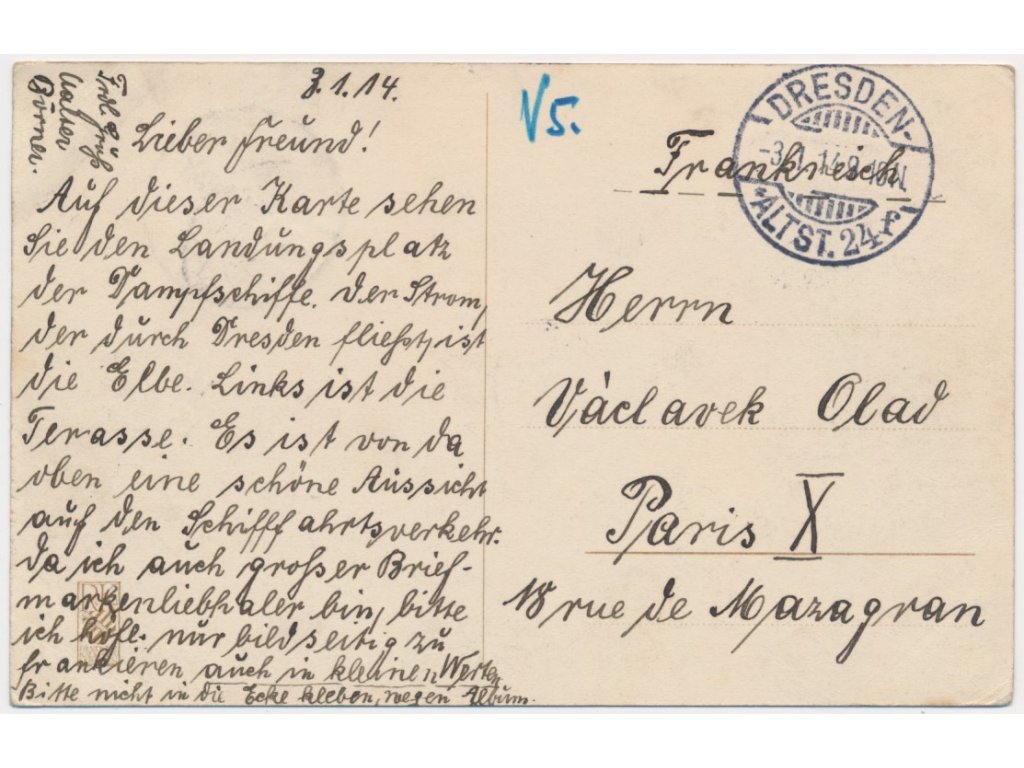 3.1.14.
Lieber Freund!
Auf dieser Karte sehen
Sie den Landungsplatz
der Dampfschiffe. Der Strom,
der durch Dresden fliesst, ist
die Elbe. Links ist die
Terasse. Es ist von da
oben eine schöne Aussicht
auf den Schifffahrtsverkehr.
Da ich auch grosser Brief-
markenliebhaber bin, bitte
ich höfl. nur bildseitig zu
frankieren auch in kleinen Werten
Bitte nicht in die Ecke kleben, wegen Album.
Frdl. Gruß
Walther
Börner.
V5.
DRESDEN-
ALTST. 24 f
Frankreich
Herrn
Václavek Olad
Paris X
18 rue de Mazagran